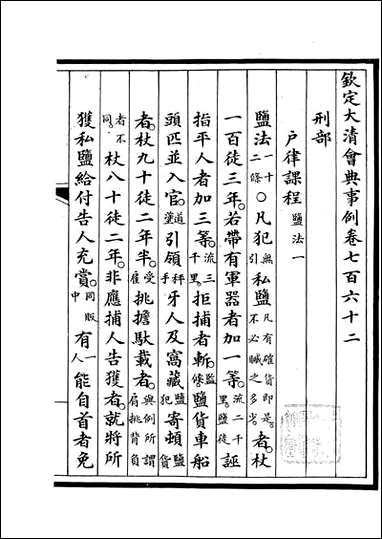 欽定大清會典事例卷七百六十二
刑部
戶律課程鹽法一
鹽法一十二條○凡犯無引私鹽凡有確貨即是。不必贓之多少。者杖
一百徒三年。若帶有軍器者加一等。流二千里。鹽徒誣
指平人者加三等。流三千里。拒捕者斬。監候。鹽貨車船
頭匹並入官。道塗引領秤手牙人及窩藏鹽犯寄頓鹽貨
者。杖九十徒二年半。受雇挑擔馱載者。與例所謂肩挑背負
者不同。杖八十徒二年。非應捕人告獲者。就將所
獲私鹽給付告人充賞。同販中有一人能自首者免